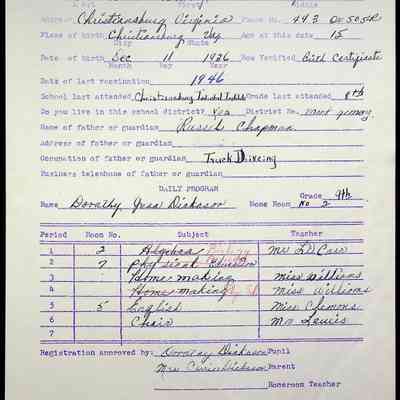 Last First Middle
Address Christiansburg Virginia Phone No. 443 or 505R
Place of birth Christiansburg Va Age at this date 15
City State
Date of birth Dec 11 1936 How Verified Birth Certificate
Month Day Year
Date of last vaccination 1946
School last attended Christiansburg Grade last attended 8th
Do you live in this school district? Yes District No.
Name of father or guardian Russell Chapman
Address of father or guardian
Occupation of father or guardian Truck Driveing
Business telephone of father or guardian
DAILY PROGRAM
Name Dorathy Dickason Home Room No 2 Grade 9th
Period Room No. Subject Teacher
1 2 Algebra Mr
2 7 Physical Education
3 Home making Miss Williams
4 Home making Miss Williams
5 5 English Miss Clemons
6 Choir Mr Lewis
7
Registration approved by: Dorathy Dickason Pupil
Mrs Dickason Parent
Homeroom Teacher